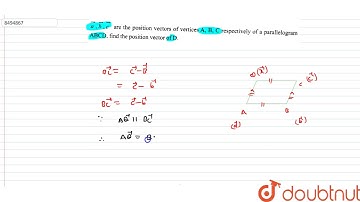 8494867
a⃗, b⃗, c⃗ are the position vectors of vertices A, B, C respectively of a parallelogram
ABCD, find the position vector of D.
= c⃗ - b⃗
= c⃗ - b⃗
= c⃗ - b⃗
∵ ||
∴ =
D (x⃗)
(c⃗)
A B
(a⃗) (b⃗)
doubtnut